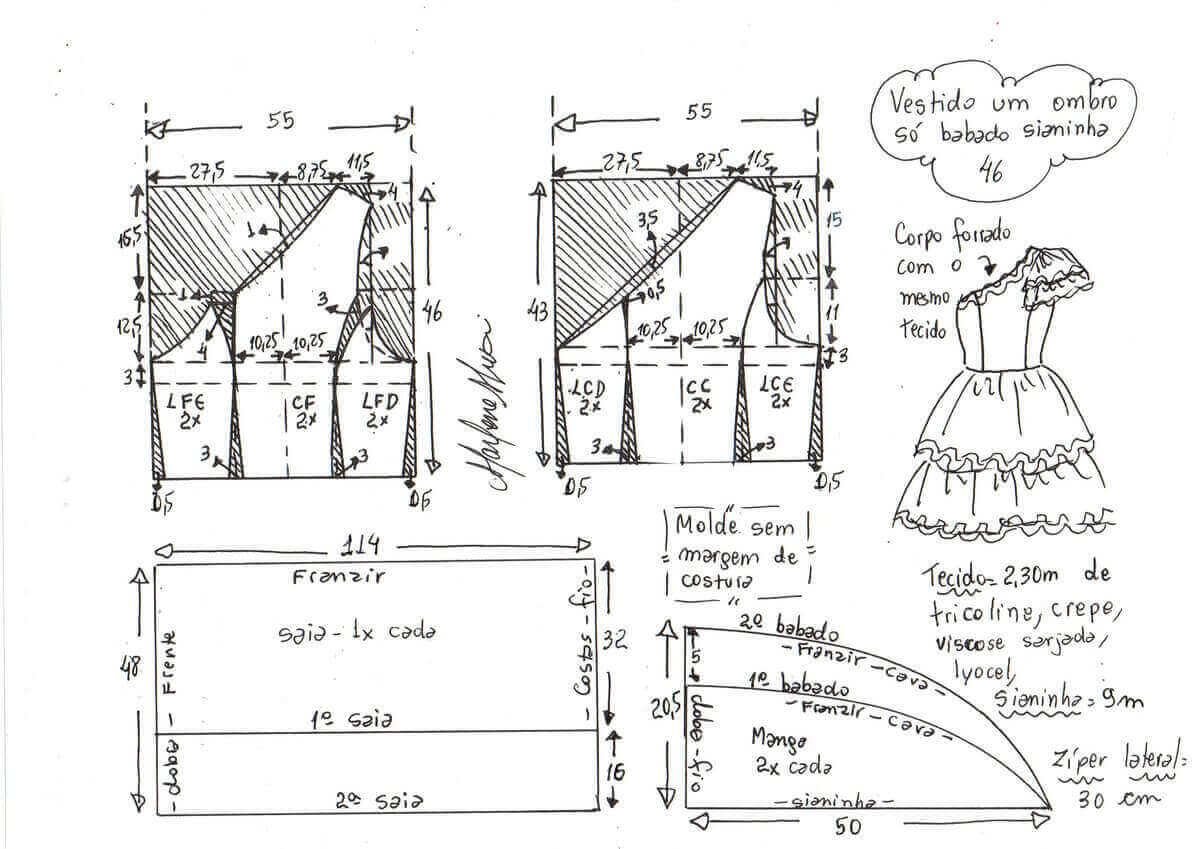 Vestido um ombro
só babado sianinha
46
55
27,5 8,75 11,5
4
16,5
1
1
3
12,5
46
10,25 10,25
4
3
LFE
2x
CF
2x
LFD
2x
3
3
0,5
0,5
55
27,5 8,75 11,5
4
15
3,5
0,5
43
11
10,25 10,25
3
LCD
2x
CC
2x
LCE
2x
3
3
0,5
0,5
Corpo forrado
com o
mesmo
tecido
114
Franzir
saia - 1x cada
48
- doba - Frente
- Costas - fio -
32
1ª saia
16
2ª saia
Molde sem
margem de
costura
2º babado
- Franzir - cava -
5
1º babado
- Franzir - cava -
20,5
dobe - fio
Manga
2x cada
- sianinha -
50
Tecido = 2,30m de
tricoline, crepe,
viscose sarjada,
lyocel,
sianinha = 9m
Zíper lateral =
30 cm